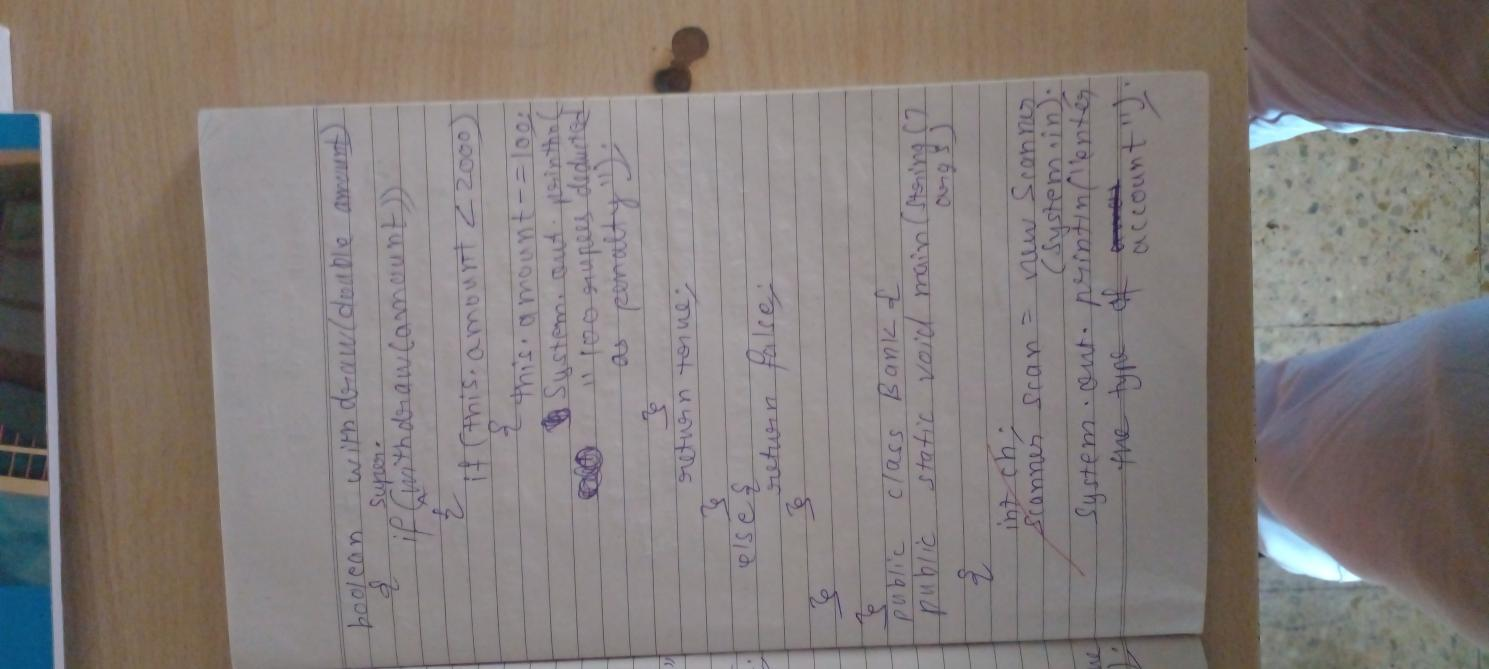 boolean withdraw(double amount)
{
super.
if (withdraw(amount))
{
if (this.amount < 2000)
{
this.amount -= 100;
System.out.println(
"100 rupees deducted
as penalty");
}
return true;
}
else {
return false;
}
}
}
public class Bank {
public static void main(String[]
args)
{
int ch;
Scanner scan = new Scanner
(System.in);
System.out.println("enter
the type of
account");